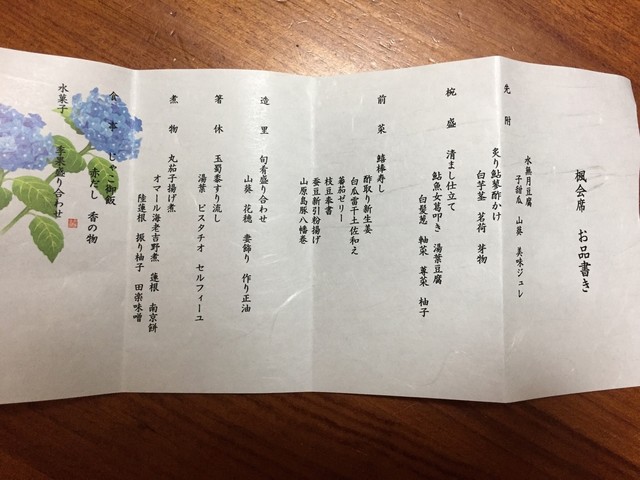 楓会席 お品書き
先附
水無月豆腐
子甜瓜 山葵 美味ジュレ
炙り鮎琴酢かけ
白芋茎 茗荷 芽物
椀盛 清まし仕立て
鮎魚女葛叩き 湯葉豆腐
白髪葱 軸菜 蓴菜 柚子
前菜 鱚棒寿し
酢取り新生姜
白瓜雷干土佐和え
蕃茄ゼリー
枝豆奉書
蚕豆新引粉揚げ
山原島豚八幡巻
造里 旬肴盛り合わせ
山葵 花穂 妻飾り 作り正油
箸休 玉蜀黍すり流し
湯葉 ピスタチオ セルフィーユ
煮物 丸茄子揚げ煮
オマール海老吉野煮 蓮根 南京餅
陸蓮根 振り柚子 田楽味噌
食事 じゃこ御飯
赤だし 香の物
水菓子 季菓盛り合わせ